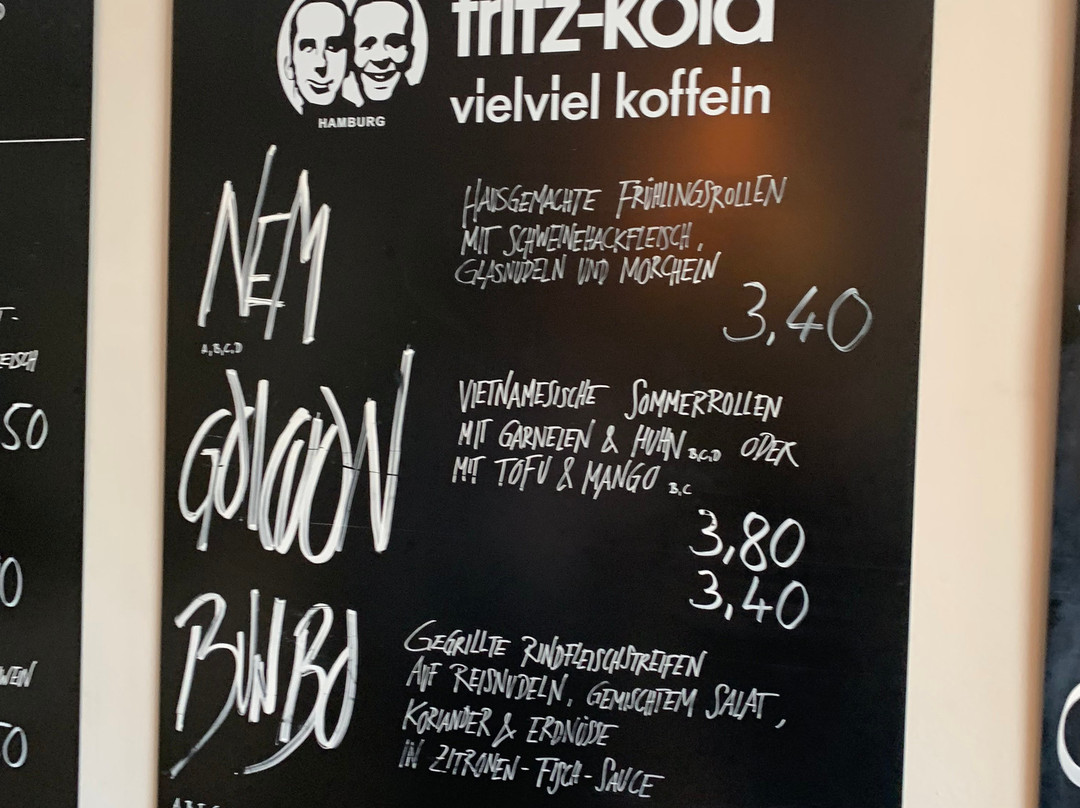 fritz-kola
vielviel koffein
HAMBURG
NEM
A,B,C,D
HAUSGEMACHTE FRÜHLINGSROLLEN
MIT SCHWEINEHACKFLEISCH,
GLASNUDELN UND MORCHELN
3,40
GOI CUON
VIETNAMESISCHE SOMMERROLLEN
MIT GARNELEN & HUHN B,C,D ODER
MIT TOFU & MANGO B,C
3,80
3,40
BUN BO
GEGRILLTE RINDFLEISCHSTREIFEN
AUF REISNUDELN, GEMISCHTEM SALAT,
KORIANDER & ERDNÜSSE
IN ZITRONEN-FISCH-SAUCE
50